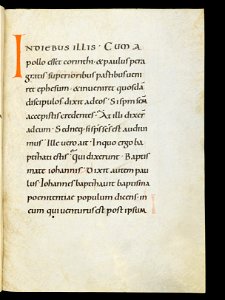 INDIEBUS ILLIS · Cum a
pollo esset corinthi · & paulus pera
gratis superioribus partibus veni
ret ephesum · & inveniret quosdā
discipulos dixit ad eos · Si spm scm
accepistis credentes · At illi dixer̄
ad eum · Sed neq; si sps scs est audivi
mus · Ille vero ait · In quo ergo ba
ptizati estis · Qui dixerunt · Baptis
mate iohannis · Dixit autem pau
lus Iohannes baptizavit baptisma
poenitentiae populum dicens · in
eum qui venturus est post ipsum